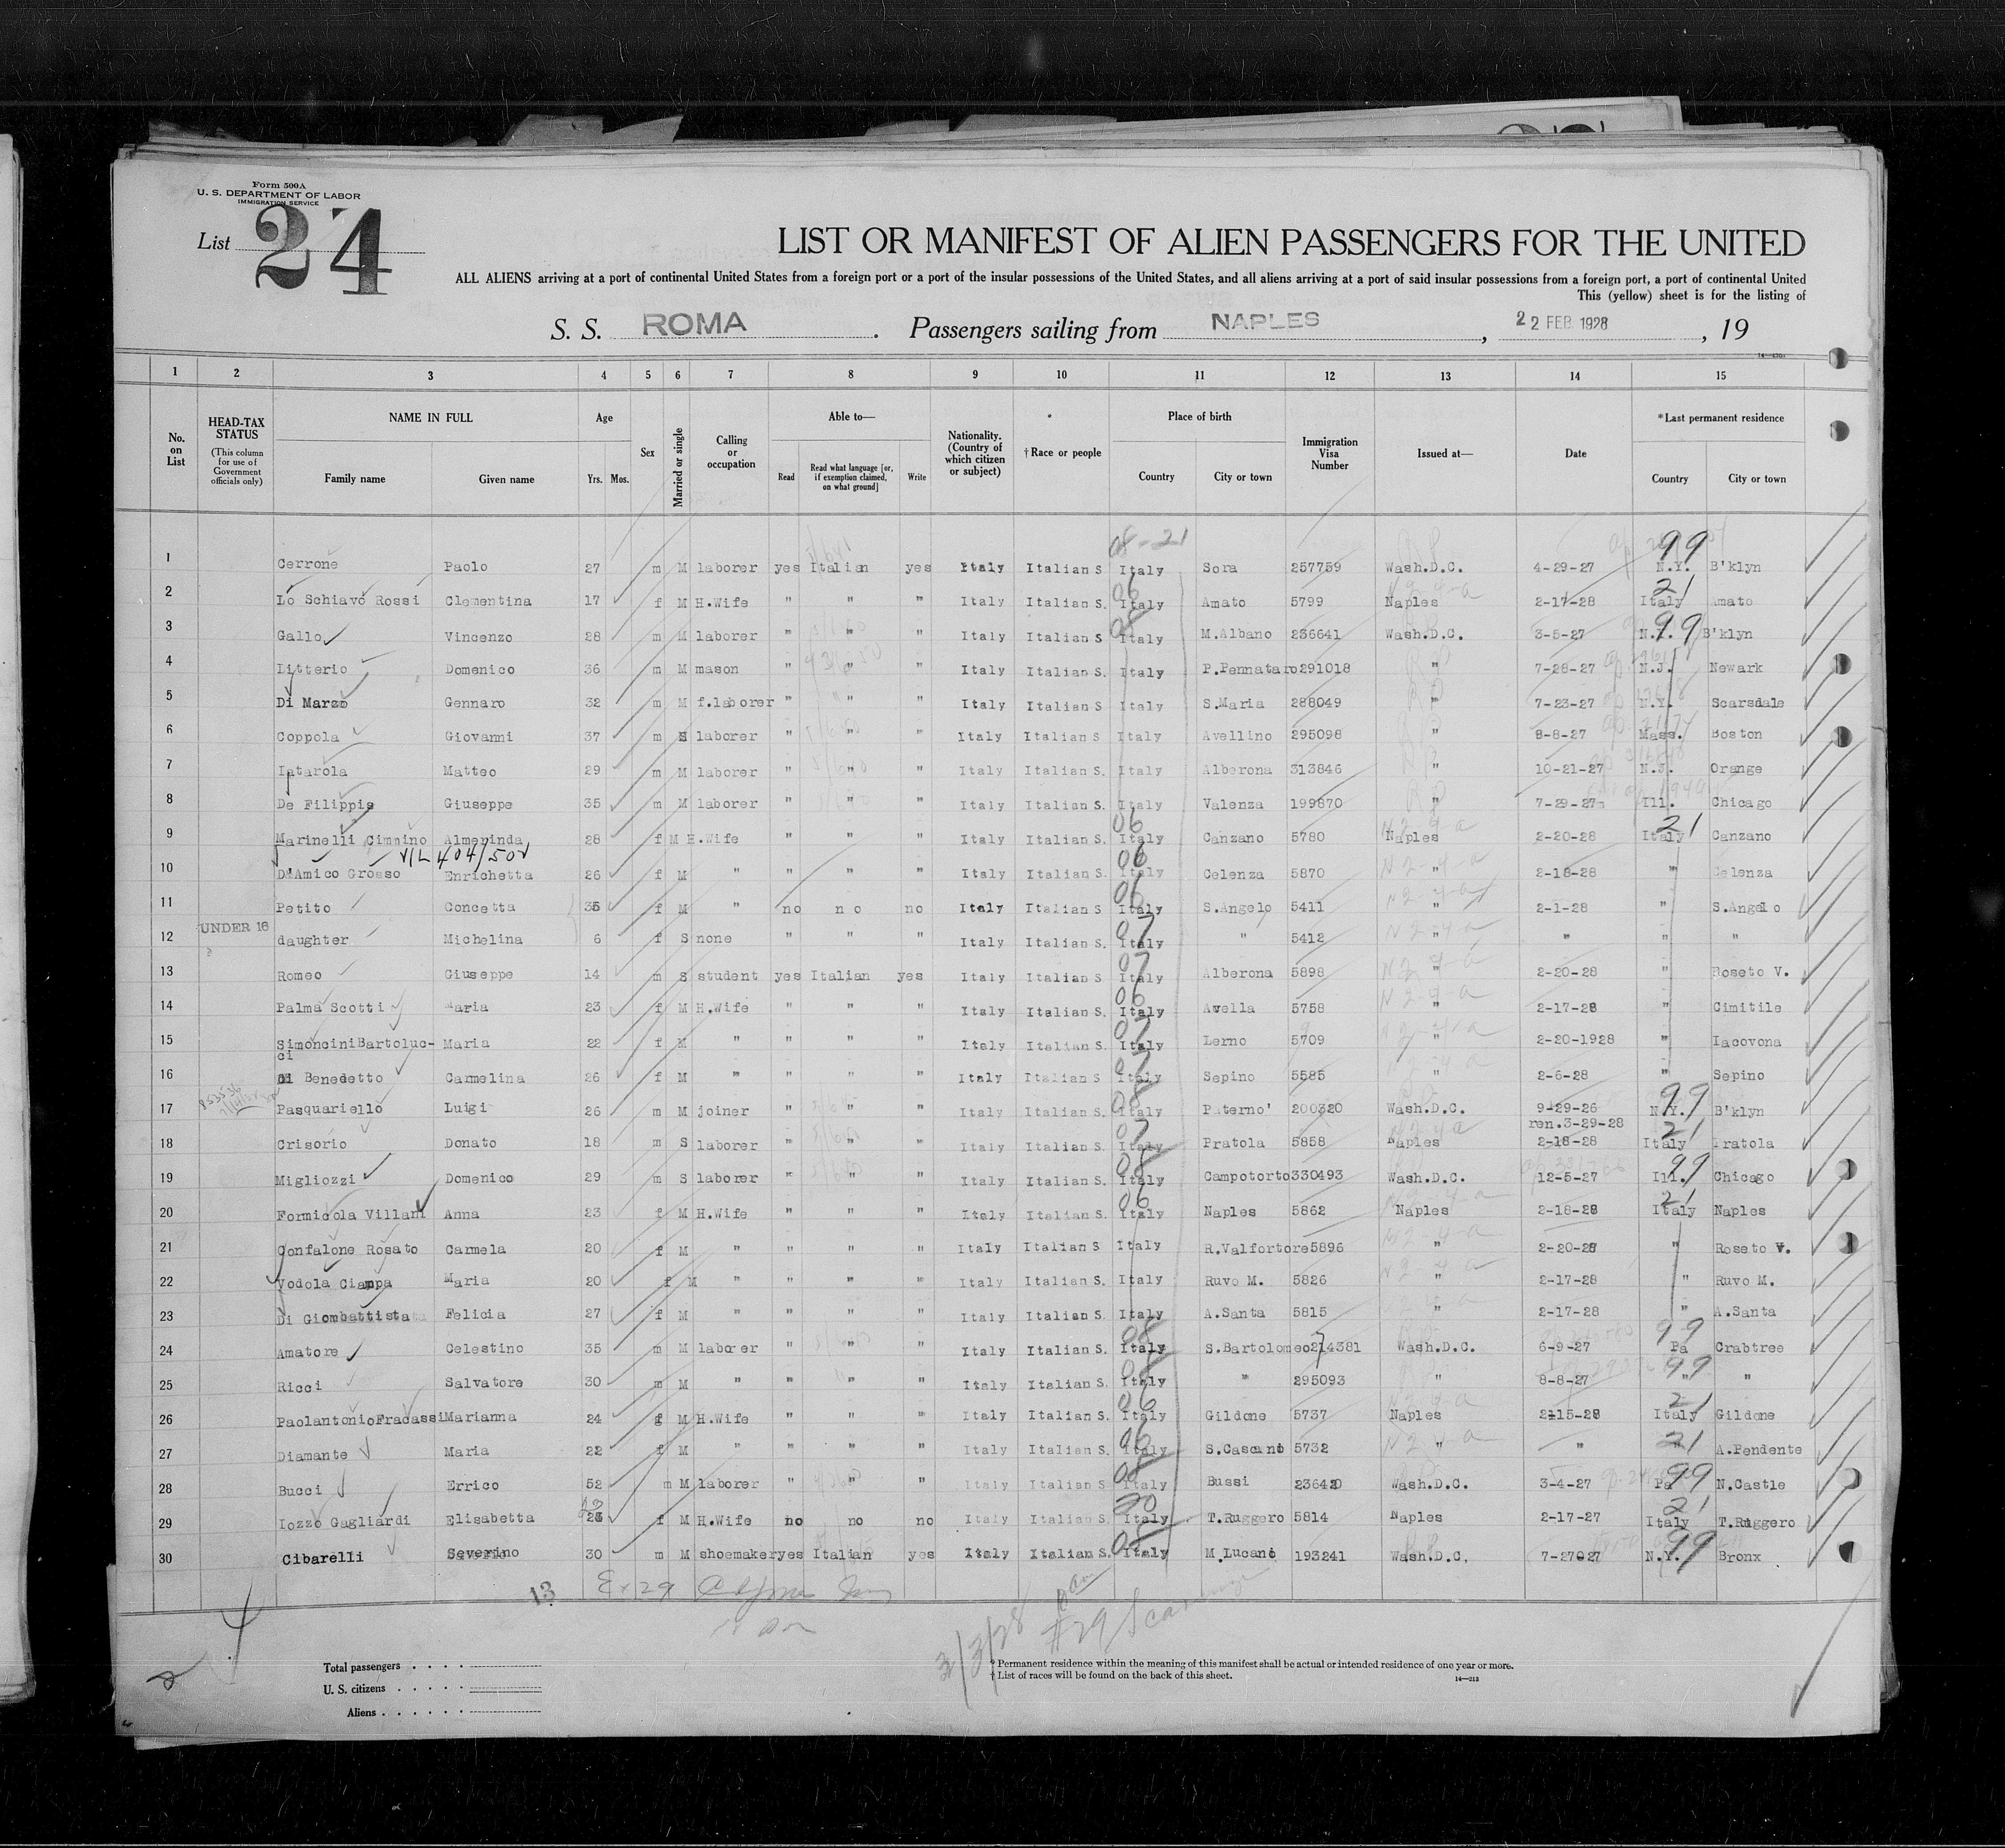 Form 500A
U. S. DEPARTMENT OF LABOR
IMMIGRATION SERVICE
List 24
LIST OR MANIFEST OF ALIEN PASSENGERS FOR THE UNITED
ALL ALIENS arriving at a port of continental United States from a foreign port or a port of the insular possessions of the United States, and all aliens arriving at a port of said insular possessions from a foreign port, a port of continental United
This (yellow) sheet is for the listing of
S. S. ROMA . Passengers sailing from NAPLES , 22 FEB 1928 , 19
1 2 3 4 5 6 7 8 9 10 11 12 13 14 15
No. on List
HEAD-TAX STATUS
(This column for use of Government officials only)
NAME IN FULL
Family name Given name
Age
Yrs. Mos.
Sex
Married or single
Calling or occupation
Able to—
Read
Read what language [or, if exemption claimed, on what ground]
Write
Nationality. (Country of which citizen or subject)
*
†Race or people
Place of birth
Country City or town
Immigration Visa Number
Issued at—
Date
*Last permanent residence
Country City or town
08-21 99
1 Cerrone Paolo 27 m M laborer yes Italian yes Italy Italian S Italy Sora 257759 Wash.D.C. 4-29-27 N.Y. B'klyn
2 Lo Schiavo Rossi Clementina 17 f M H.Wife " " " Italy Italian S. 06 Italy Amato 5799 Naples 2-17-28 21 Italy Amato
3 Gallo Vincenzo 28 m M laborer " " " Italy Italian S 08 Italy M.Albano 236641 Wash.D.C. 3-5-27 N.Y. 99 B'klyn
4 Litterio Domenico 36 m M mason " " " Italy Italian S. Italy P.Pennataro 291018 " 7-28-27 N.J. Newark
5 Di Marzo Gennaro 32 m M f.laborer " " " Italy Italian S Italy S.Maria 288049 " 7-23-27 N.Y. Scarsdale
6 Coppola Giovanni 37 m laborer " " " Italy Italian S Italy Avellino 295098 " 8-8-27 Mass. Boston
7 Iatarola Matteo 29 m M laborer " " " Italy Italian S. Italy Alberona 313846 " 10-21-27 N.J. Orange
8 De Filippis Giuseppe 35 m M laborer " " " Italy Italian S. Italy Valenza 199870 " 7-29-27 Ill. Chicago
9 Marinelli Cimmino Almerinda 28 f M H.Wife " " " Italy Italian S. 06 Italy Canzano 5780 Naples 2-20-28 21 Italy Canzano
V/L 404/50
10 D'Amico Grosso Enrichetta 26 f M " " " " Italy Italian S. 06 Italy Celenza 5870 " 2-18-28 " Celenza
11 Petito Concetta 35 f M " no no no Italy Italian S 06 Italy S.Angelo 5411 " 2-1-28 " S.Angelo
UNDER 16
12 daughter Michelina 6 f S none " " " Italy Italian S. 07 Italy " 5412 " " " "
13 Romeo Giuseppe 14 m S student yes Italian yes Italy Italian S. 07 Italy Alberona 5898 " 2-20-28 " Roseto V.
14 Palma Scotti Maria 23 f M H.Wife " " " Italy Italian S. 06 Italy Avella 5758 " 2-17-28 " Cimitile
15 SimonciniBartoluc-ci Maria 22 f M " " " " Italy Italian S. 07 Italy Lerno 5709 " 2-20-1928 " Iacovona
16 di Benedetto Carmelina 26 f M " " " " Italy Italian S 07 Italy Sepino 5585 " 2-6-28 " Sepino
17 Pasquariello Luigi 26 m M joiner " " " Italy Italian S. 08 Italy Paterno' 200320 Wash.D.C. 9-29-26 N.Y. 99 B'klyn
ren.3-29-28
18 Crisorio Donato 18 m S laborer " " " Italy Italian S. 07 Italy Pratola 5858 Naples 2-18-28 21 Italy Pratola
19 Migliozzi Domenico 29 m S laborer " " " Italy Italian S. 08 Italy Campotorto 330493 Wash.D.C. 12-5-27 Ill. 99 Chicago
20 Formicola Villani Anna 23 f M H.Wife " " " Italy Italian S. 06 Italy Naples 5862 Naples 2-18-28 21 Italy Naples
21 Confalone Rosato Carmela 20 f M " " " " Italy Italian S Italy R.Valfortore 5896 " 2-20-28 " Roseto V.
22 Vodola Ciampa Maria 20 f M " " " " Italy Italian S. Italy Ruvo M. 5826 " 2-17-28 " Ruvo M.
23 Di Giombattista Felicia 27 f M " " " " Italy Italian S. Italy A.Santa 5815 " 2-17-28 " A.Santa
24 Amatore Celestino 35 m M laborer " " " Italy Italian S. 08 Italy S.Bartolomeo 214381 Wash.D.C. 6-9-27 99 Pa Crabtree
25 Ricci Salvatore 30 m M " " " " Italy Italian S. 08 Italy " 295093 " 8-8-27 99 " "
26 PaolantonioFracassi Marianna 24 f M H.Wife " " " Italy Italian S. 06 Italy Gildone 5737 Naples 2-15-28 21 Italy Gildone
27 Diamante Maria 22 f M " " " " Italy Italian S. 06 Italy S.Casciano 5732 " " 21 A.Pendente
28 Bucci Errico 52 m M laborer " " " Italy Italian S 08 Italy Bussi 23642 Wash.D.C. 3-4-27 Pa 99 N.Castle
29 Iozzo Gagliardi Elisabetta 23 f M H.Wife no no no Italy Italian S. 20 Italy T.Ruggero 5814 Naples 2-17-27 21 Italy T.Ruggero
30 Cibarelli Severino 30 m M shoemaker yes Italian yes Italy Italian S. 08 Italy M.Lucano 193241 Wash.D.C. 7-27-27 N.Y. 99 Bronx
13 Ex 29
3/3/28 #29
Total passengers . . . .
U. S. citizens . . . . .
Aliens . . . . . .
* Permanent residence within the meaning of this manifest shall be actual or intended residence of one year or more.
† List of races will be found on the back of this sheet.
14—213